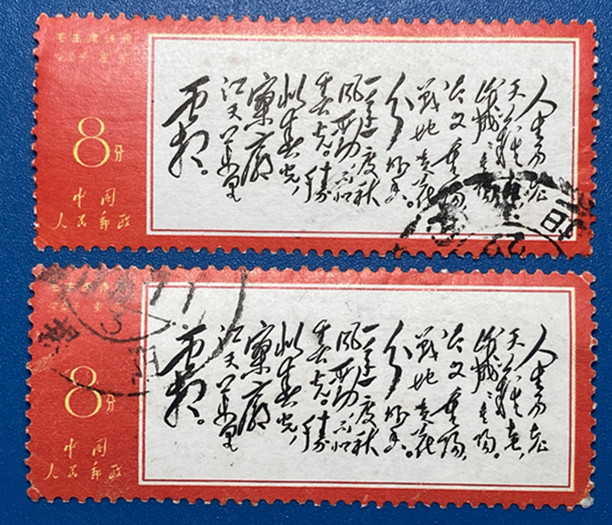 毛主席诗词
8分
中国
人民邮政
人生易老
天难老,
岁岁重阳。
今又重阳,
战地黄花
分外香。
一年一度秋
风劲,不似
春光。胜
似春光,
寥廓
江天万里
霜。
8分
中国
人民邮政
人生易老
天难老,
岁岁重阳。
今又重阳,
战地黄花
分外香。
一年一度秋
风劲,不似
春光。胜
似春光,
寥廓
江天万里
霜。